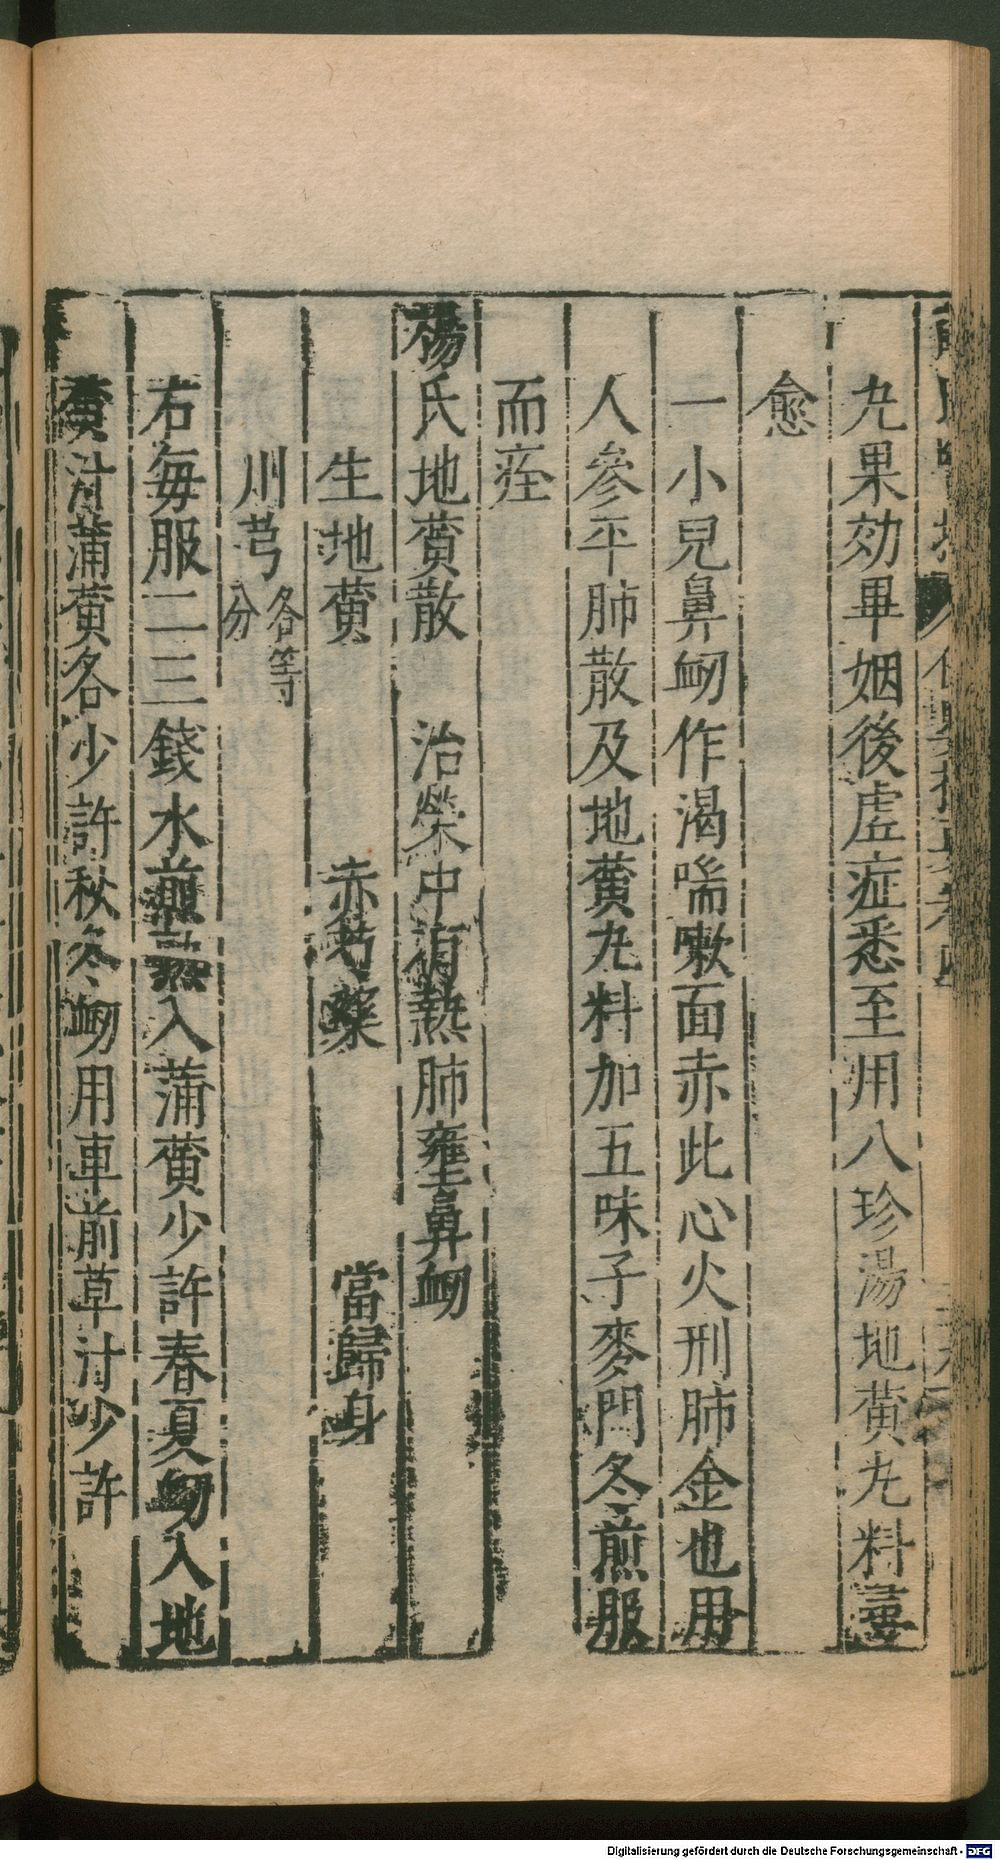 丸果効畢姻後虛症悉至用八珍湯地黄丸料寻
愈
一小兒鼻衂作渴喘嗽面赤此心火刑肺金也用
人參平肺散及地黄丸料加五味子麥門冬煎服
而痊
楊氏地黄散　治榮中有熱肺壅鼻衂
生地黄　赤芍藥　當歸身
川芎各等分
右每服二三錢水煎熟入蒲黄少許春夏衂入地
黄汁蒲黄各少許秋冬衂用車前草汁少許
Digitalisierung gefördert durch die Deutsche Forschungsgemeinschaft - DFG